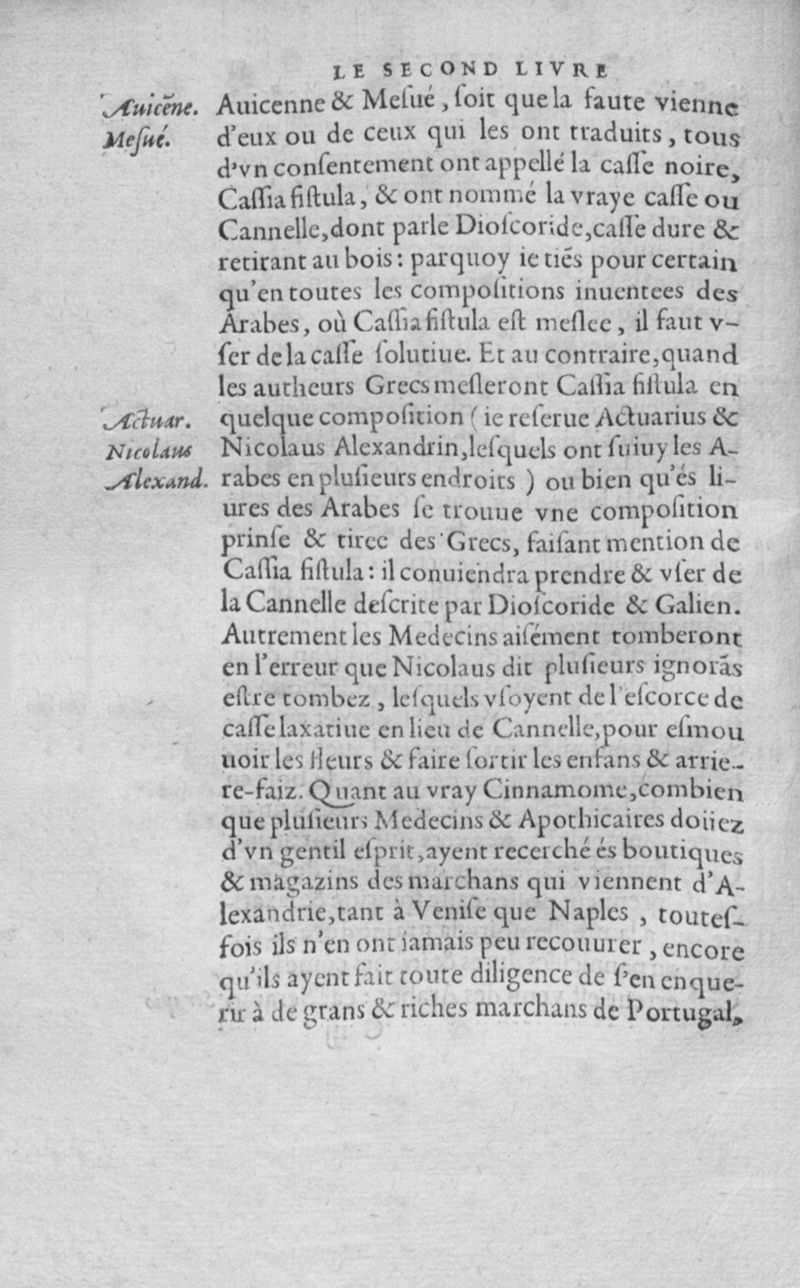 LE SECOND LIVRE
Auicẽne.
Meſué.
Auicenne & Meſué, ſoit que la faute vienne
d'eux ou de ceux qui les ont traduits, tous
d'vn conſentement ont appellé la caſſe noire,
Caſſia fiſtula, & ont nommé la vraye caſſe ou
Cannelle, dont parle Dioſcoride, caſſe dure &
retirant au bois: parquoy ie tiẽs pour certain
qu'en toutes les compoſitions inuentees des
Arabes, où Caſſia fiſtula eſt meſlee, il faut v-
ſer de la caſſe ſolutiue. Et au contraire, quand
les autheurs Grecs meſleront Caſſia fiſtula en
Actuar.
Nicolaus
Alexand.
quelque compoſition (ie reſerue Actuarius &
Nicolaus Alexandrin, leſquels ont ſuiuy les A-
rabes en pluſieurs endroits) ou bien qu'és li-
ures des Arabes ſe trouue vne compoſition
prinſe & tiree des Grecs, faiſant mention de
Caſſia fiſtula: il conuiendra prendre & vſer de
la Cannelle deſcrite par Dioſcoride & Galien.
Autrement les Medecins aiſément tomberont
en l'erreur que Nicolaus dit pluſieurs ignorãs
eſtre tombez, leſquels vſoyent de l'eſcorce de
caſſe laxatiue en lieu de Cannelle, pour eſmou
uoir les fleurs & faire ſortir les enfans & arrie-
re-faiz. Quant au vray Cinnamome, combien
que pluſieurs Medecins & Apothicaires doüez
d'vn gentil eſprit, ayent recerché és boutiques
& magazins des marchans qui viennent d'A-
lexandrie, tant à Veniſe que Naples, touteſ-
fois ils n'en ont iamais peu recouurer, encore
qu'ils ayent fait toute diligence de ſ'en enque-
rir à de grans & riches marchans de Portugal,